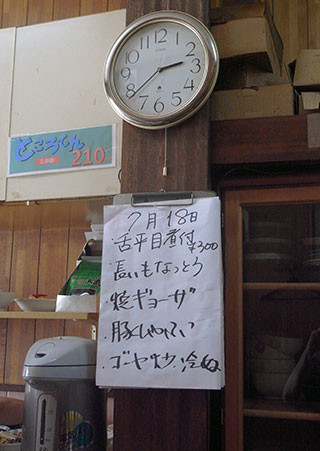 12
1
2
3
4
5
6
7
8
9
10
11
ところてん
210
7月18日
舌平目煮付
¥300
・長いもなっとう
・焼ギョーザ
・豚しゃぶ
・ゴーヤ炒・冷奴